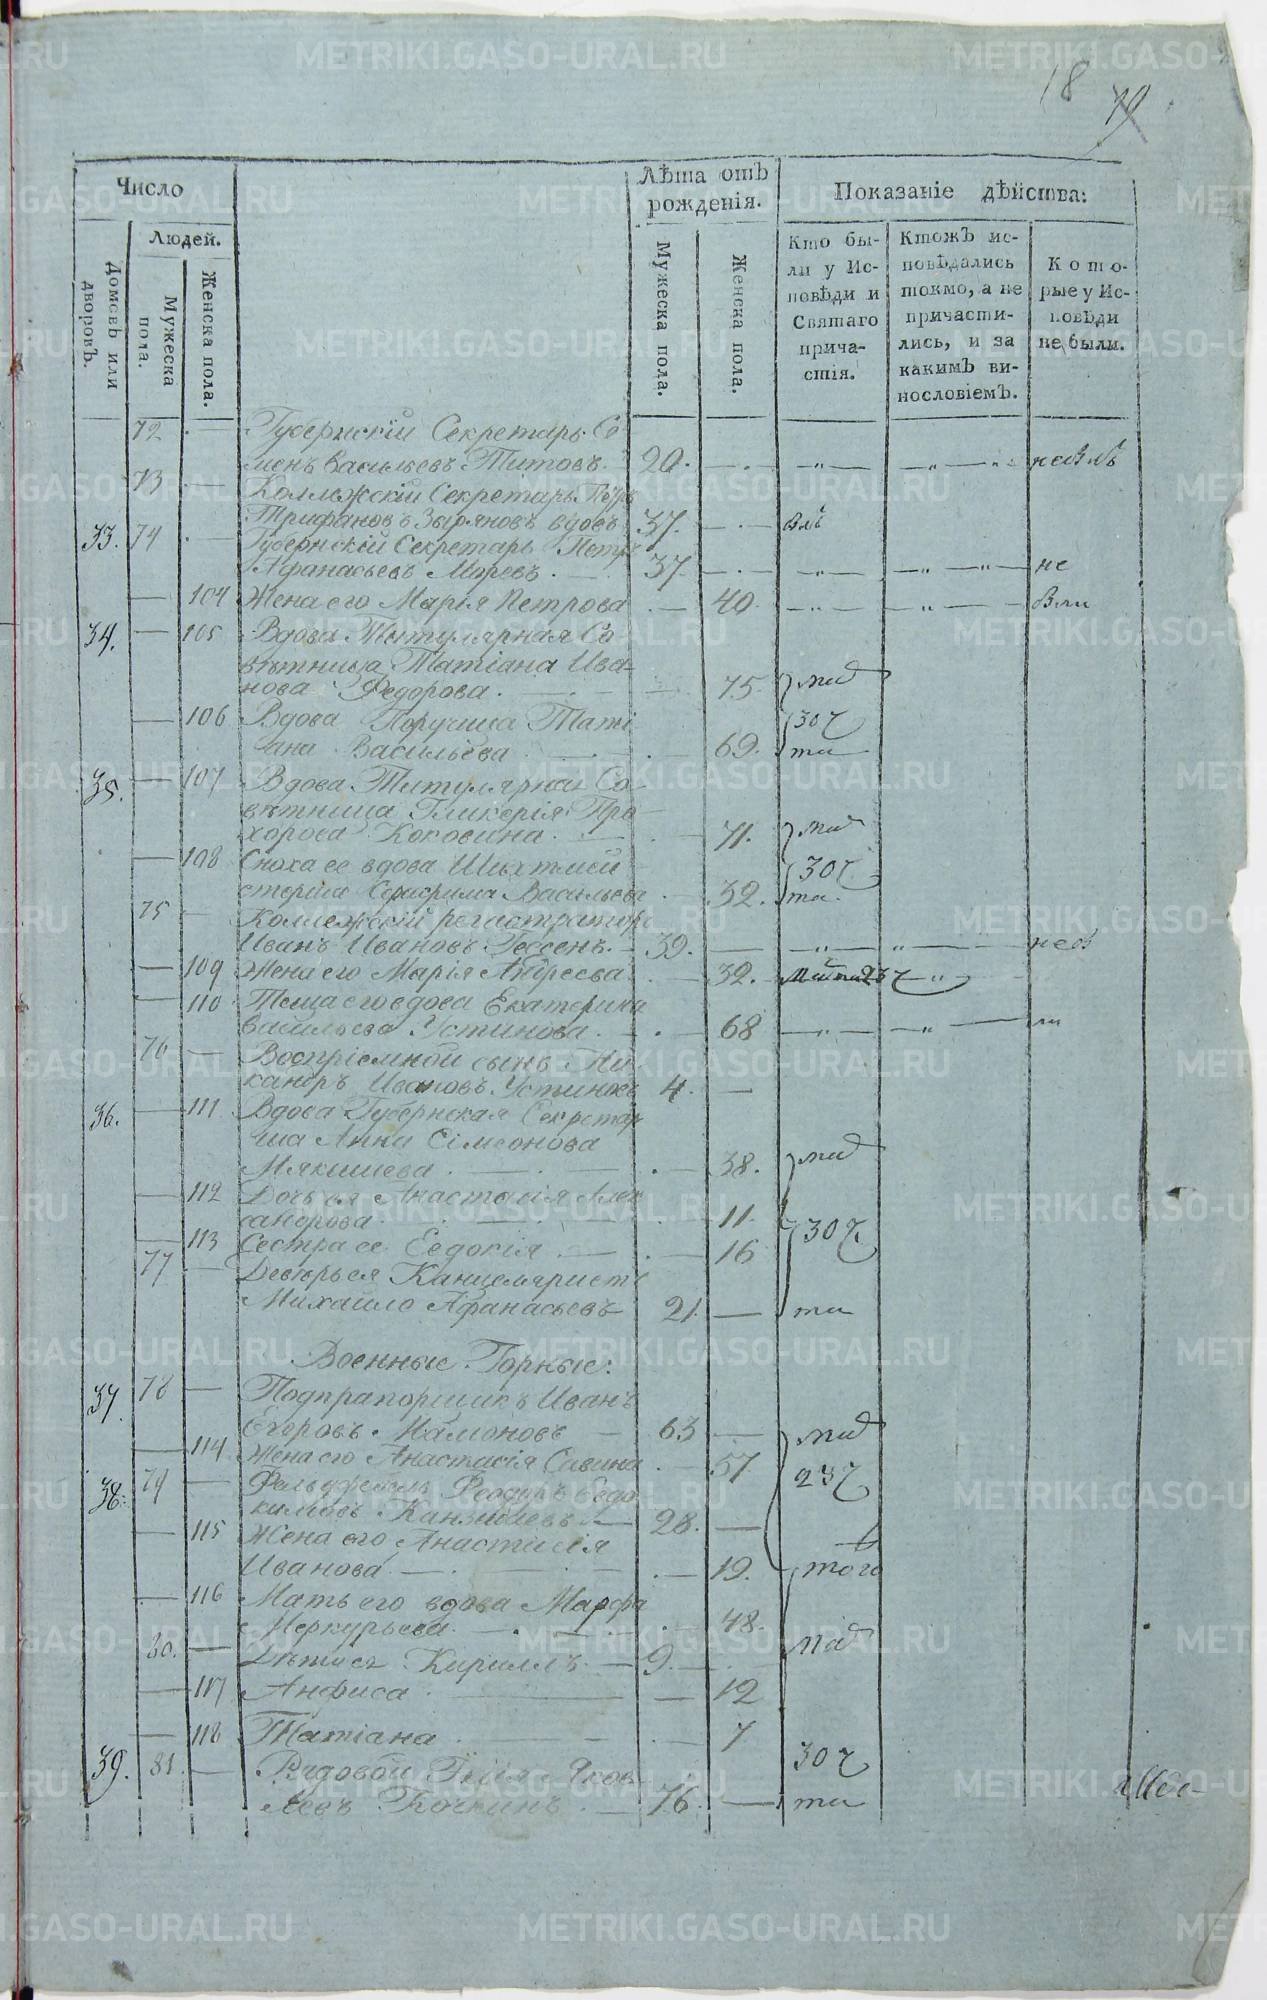 18 19
Число
Лѣта отъ рожденія.
Показаніе дѣйства:
Людей.
Домовъ или дворовъ.
Мужеска пола.
Женска пола.
Мужеска пола.
Женска пола.
Кто бы-
ли у Ис-
повѣди и
Святаго
прича-
стія.
Ктожъ ис-
повѣдались
токмо, а не
причасти-
лись, и за
какимъ ви-
нословіемъ.
Кото-
рые у Ис-
повѣди
не были.
72 Губернскій Секретарь Се
менъ Васильевъ Титовъ. 20.
73 Коллежскій Секретарь
Трифановъ Зыряновъ вдовъ 37.
33. 74 Губернскій Секретарь Петръ
Афанасьевъ Моревъ. 37 не
104 Жена его Марія Петрова 40.
34. 105 Вдова Титулярная Со-
вѣтница Татіана Ива-
нова Федорова. 75.
106 Вдова Поручица Таті
ана Васильева 69.
35. 107 Вдова Титулярная Со-
вѣтница Гликерія Про-
хорова Коковина. 71.
108 Сноха ее вдова Шихтмей
стерша Серафима Васильева 32.
75 Коллежскій регистраторъ
Иванъ Ивановъ Гессенъ. 39.
109 Жена его Марія Андреева 32.
110 Теща его вдова Екатерина
Васильева Устинова. 68
76 Воспріемной сынъ Ни
кандръ Ивановъ Устиновъ 4.
36. 111 Вдова Губернская Секретар
ша Анна Сімеонова
Мякишева. 38.
112 Дочь ея Анастасія Алек
сандрова. 11.
113 Сестра ее Евдокія 16
77 Деверь ея Канцеляристъ
Михайло Афанасьевъ 21.
Военные Горные:
37. 78 Подпрапорщикъ Иванъ
Егоровъ Мамоновъ 63
114 Жена его Анастасія Савина 57
38. 79 Фельдфебель Феодоръ Евдо
кимовъ 28.
115 Жена его Анастасія
Иванова 19.
116 Мать его вдова Марфа
Меркурьева. 48.
80. Дѣти ея Кириллъ 9.
117 Анфиса 12
118 Татіана 7
39. 81. Рядовой Яков
левъ 76.
METRIKI.GASO-URAL.RU